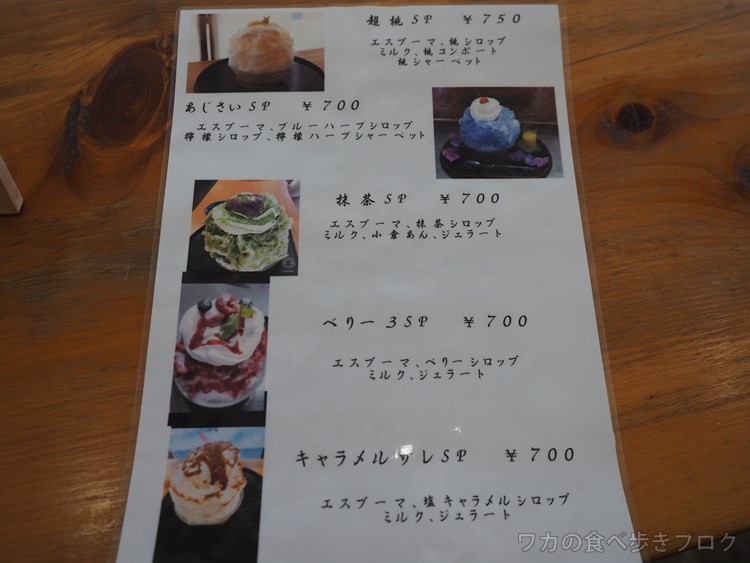 超桃SP ￥750
エスプーマ、桃シロップ
ミルク、桃コンポート
桃シャーベット
あじさいSP ￥700
エスプーマ、ブルーハーブシロップ
檸檬シロップ、檸檬ハーブシャーベット
抹茶SP ￥700
エスプーマ、抹茶シロップ
ミルク、小倉あん、ジェラート
ベリー3SP ￥700
エスプーマ、ベリーシロップ
ミルク、ジェラート
キャラメルサレSP ￥700
エスプーマ、塩キャラメルシロップ
ミルク、ジェラート
ワカの食べ歩きブログ